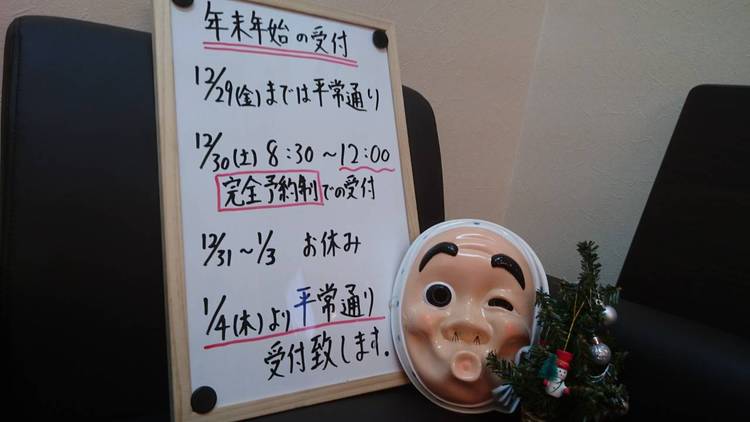 年末年始の受付
12/29(金)までは平常通り
12/30(土) 8:30～12:00
完全予約制での受付
12/31～1/3 お休み
1/4(木)より平常通り
受付致します.